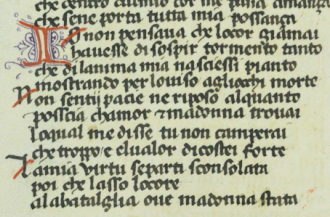 che dentro cor me
che sene porta tutta mia possança
Io non pensava che locor giamai
hauesse di sospir tormento tanto
che di lanima mia nasciessi pianto
mostrando per louiso agliocchi morte
Non sentii pacie ne riposo alquanto
poscia chamor e madonna trouai
loqual me disse tu non camperai
che troppo e lualor di costei forte
La mia uirtu separti sconsolata
poi che lasso locore
ala bataglia oue madonna stata